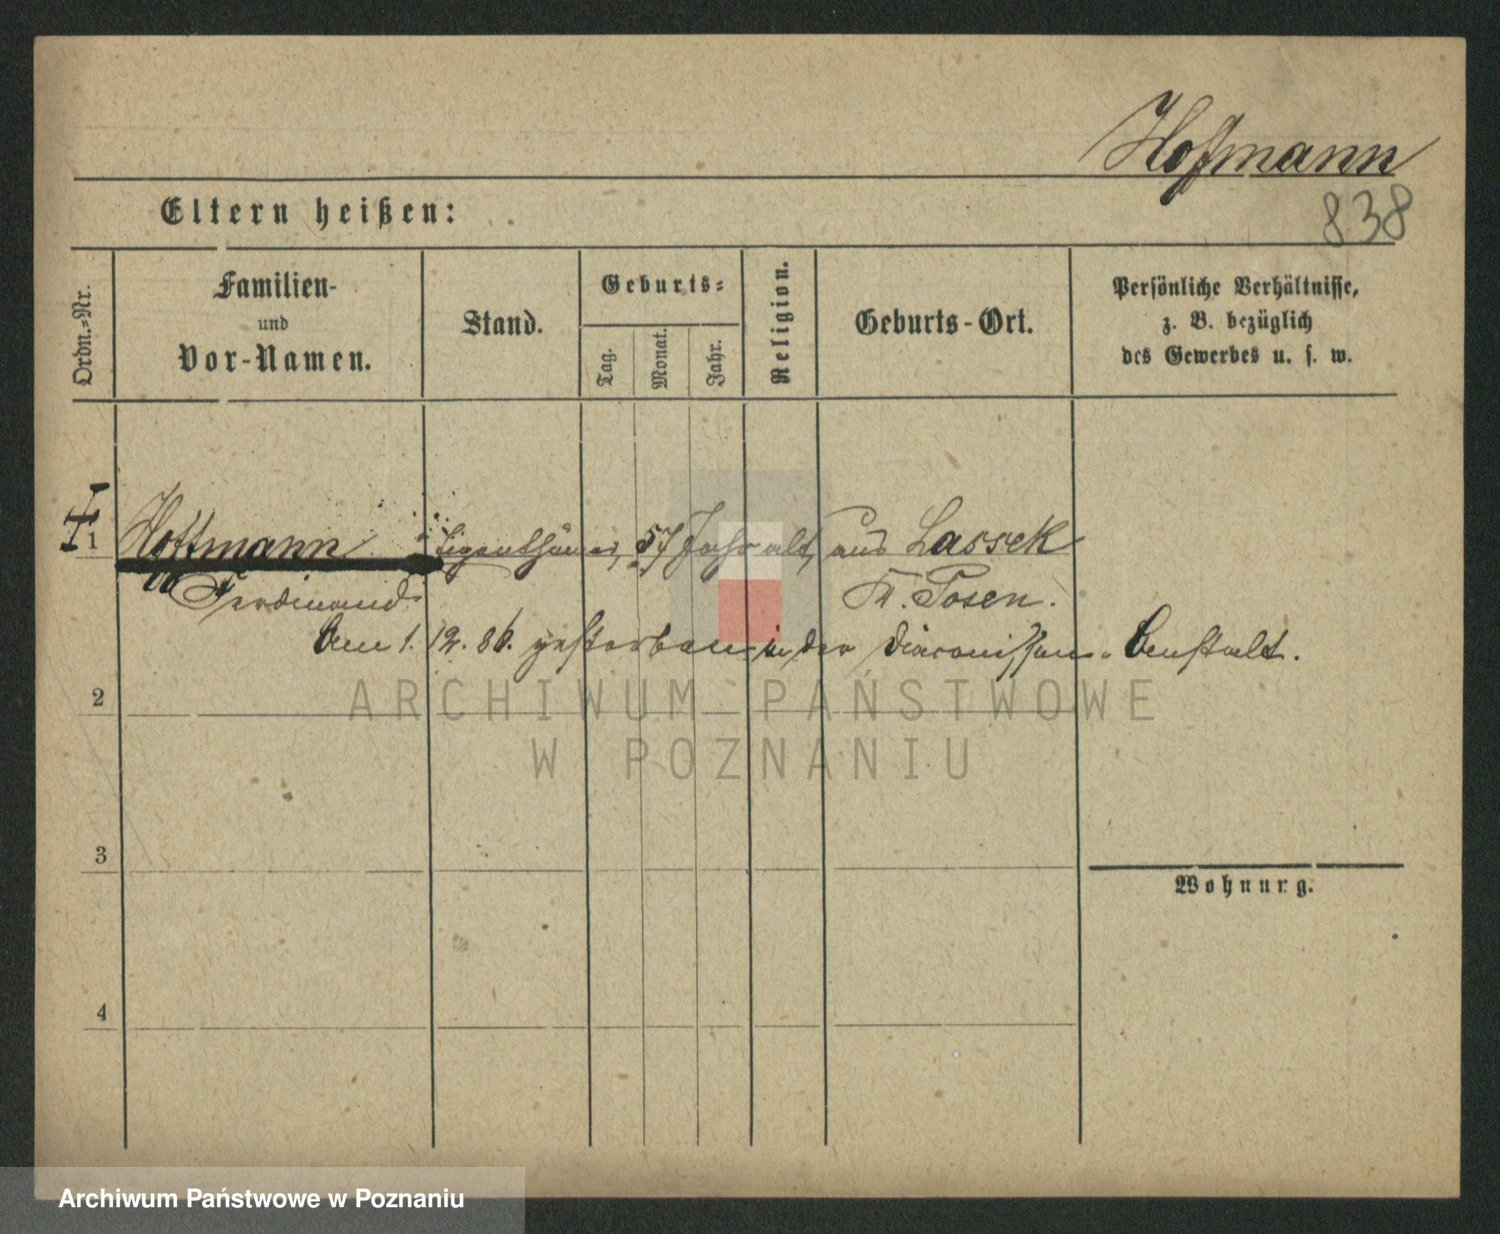 Hoffmann
838
Eltern heißen:
Ordn.-Nr.
Familien-
und
Vor-Namen.
Stand.
Geburts-
Tag.
Monat.
Jahr.
Religion.
Geburts-Ort.
Persönliche Verhältnisse,
z. B. bezüglich
des Gewerbes u. s. w.
1 Hoffmann Eigenthümer, 57 Jahr alt, aus Lassek
Ferdinand Kr. Posen.
Am 1. 12. 86. gestorben in der Diaconissen-Anstalt.
2
ARCHIWUM PAŃSTWOWE
W POZNANIU
3
Wohnung.
4
Archiwum Państwowe w Poznaniu